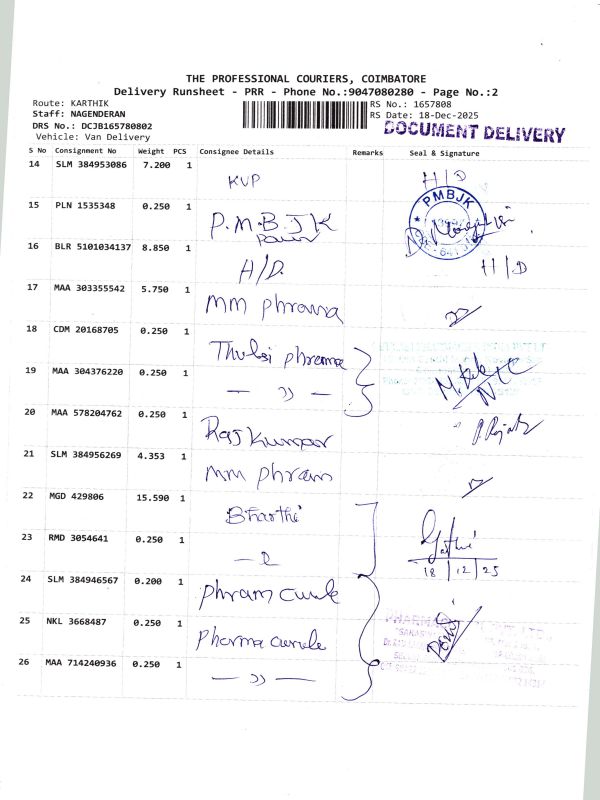 THE PROFESSIONAL COURIERS, COIMBATORE
Delivery Runsheet - PRR - Phone No.:9047080280 - Page No.:2
Route: KARTHIK RS No.: 1657808
Staff: NAGENDERAN RS Date: 18-Dec-2025
DRS No.: DCJB165780802 DOCUMENT DELIVERY
Vehicle: Van Delivery
S No Consignment No Weight PCS Consignee Details Remarks Seal & Signature
14 SLM 384953086 7.200 1 KVP H/D
15 PLN 1535348 0.250 1 P.M.B.J.K PMBJK
16 BLR 5101034137 8.850 1 H/D. H/D
17 MAA 303355542 5.750 1 mm phrama
18 CDM 20168705 0.250 1 Thulsi phrama
19 MAA 304376220 0.250 1 — ,, —
20 MAA 578204762 0.250 1 Raj Kumar
21 SLM 384956269 4.353 1 mm phram
22 MGD 429806 15.590 1 Bharthi
23 RMD 3054641 0.250 1 18/12/25
24 SLM 384946567 0.200 1 phram
25 NKL 3668487 0.250 1 pharma
26 MAA 714240936 0.250 1 — ,, —